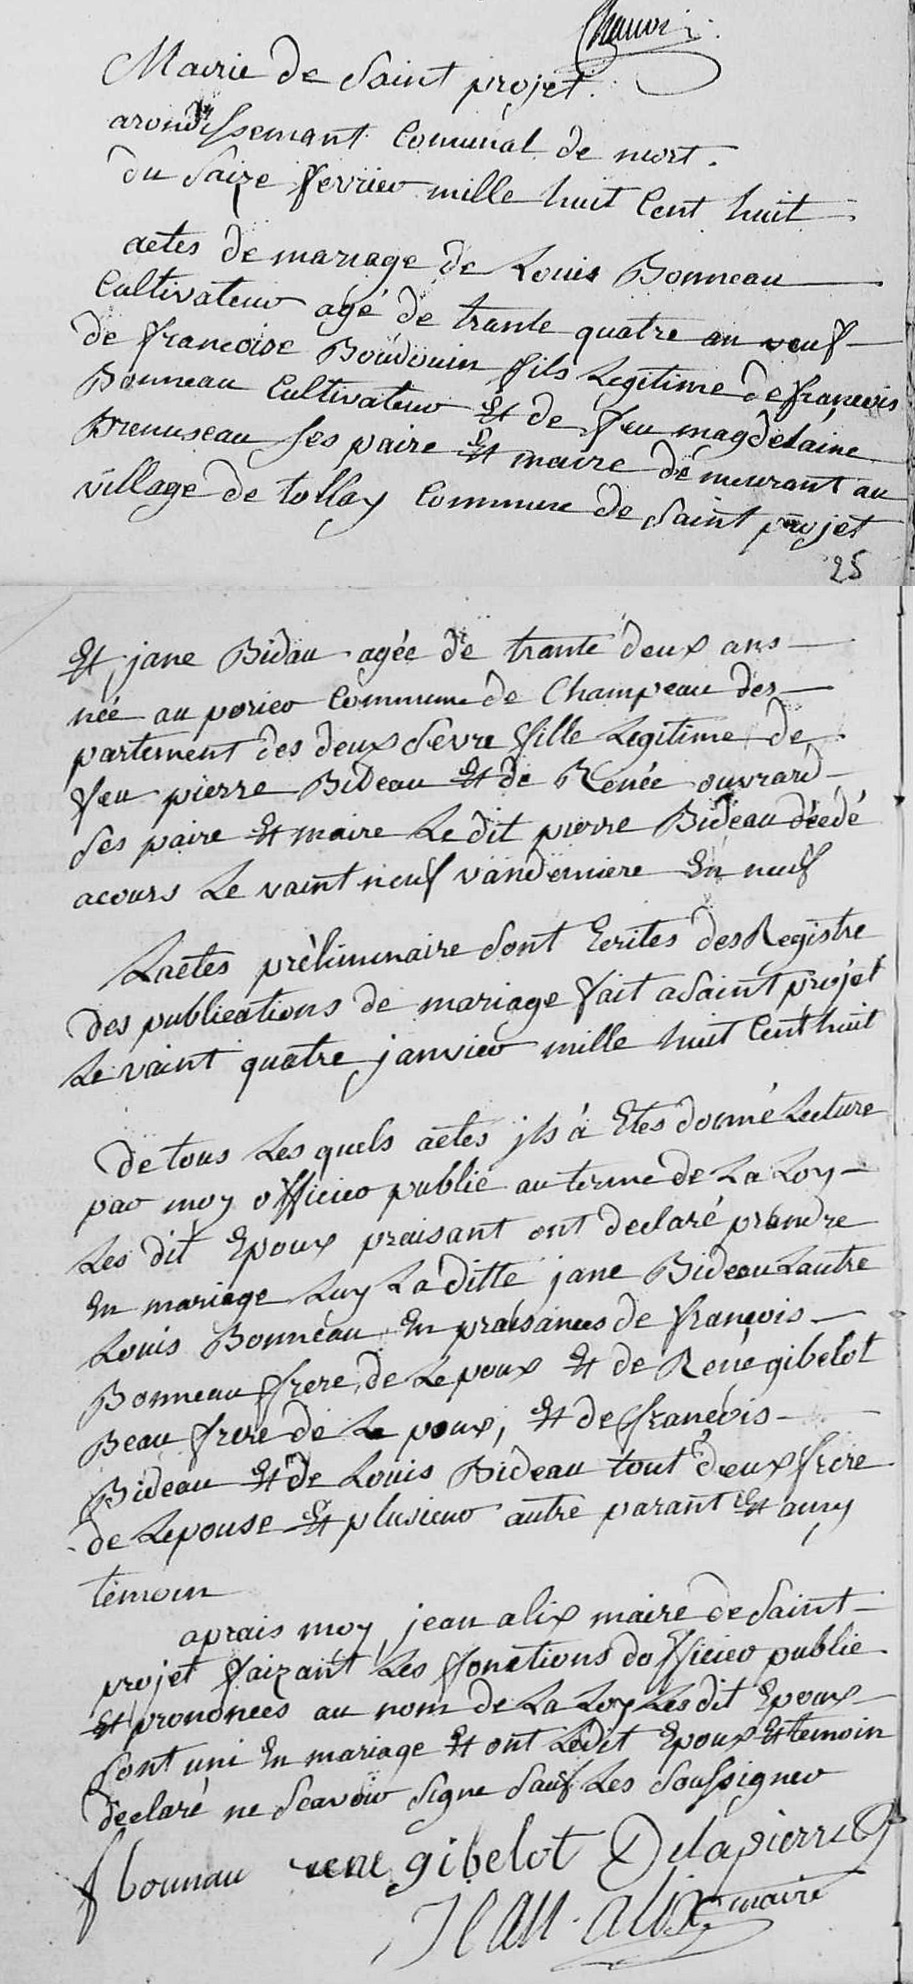 Mairie de Saint projet
arondissemant Comunal de niort.
du Saize fevrier mille huit Cent huit
actes de mariage de Louis Bonneau
Cultivateur agé de trante quatre an veuf
de francoise Boudouin fils Legitime de françois
Bonneau Cultivateur Et de feu magdelaine
Brenuseau ses paire Et maire demeurant au
village de tollay Commune de Saint projet
25
Et jane Bidau agée de trante deux ans
née au porier Commune de Champeau des
partement des deux Sevre fille Legitime de
feu pierre Bideau Et de Renée ouvrard
Ses paire Et maire Le dit pierre Bideau décedé
acours Le vaint neuf vandemiere En neuf
Lactes préliminaire Sont Ecrites des Registre
des publications de mariage fait a Saint projet
Le vaint quatre janvier mille huit Cent huit
de tous Les quels actes jls à Etes donné Lecture
par moy officier public au terme de La Loy
Les dit Epoux praisant ont declaré prandre
En mariage Luy La ditte jane Bideau Lautre
Louis Bonneau En praisances de françois
Bonneau frere de Lepoux Et de René gibelot
Beau frere de Le poux, Et de françois
Bideau Et de Louis Bideau tout deux frere
de Lepouse Et plusieur autre parant Et amy
temoin
aprais moy jean alix maire de Saint
projet faizant Les fonctions dofficier public
Et prononcés au nom de La Loy Les dit Epoux
Sont uni En mariage Et ont Ledit Epoux Et temoin
declaré ne Scavoir Signe Sauf Les Soussigner
f bounau rene gibelot Delapierre
Jean alix maire